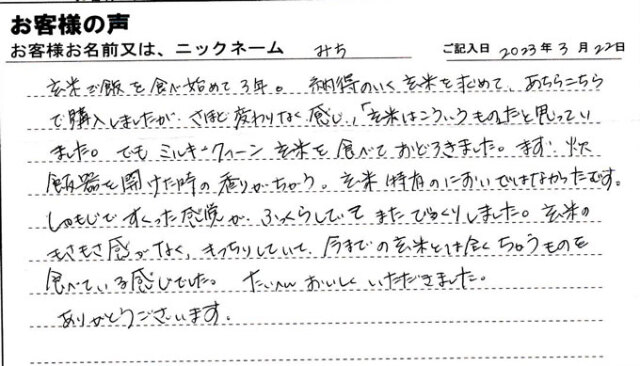 お客様の声
お客様お名前又は、ニックネーム みち ご記入日 2023年3月22日
玄米ご飯を食べ始めて3年。 納得のいく玄米を求めて、あちらこちら
で購入しましたが、さほど変わりなく感じ、「玄米はこういうものだと思ってい
ました。でもミルキークィーン玄米を食べておどろきました。まず、炊
飯器を開けた時の香りがちがう。玄米特有のにおいではなかったです。
しゃもじですくった感覚が、ふっくらしていてまたびっくりしました。玄米の
もさもさ感がなく、もっちりしていて、今までの玄米とは全くちがうものを
食べている感じでした。たいへんおいしくいただきました。
ありがとうございます。